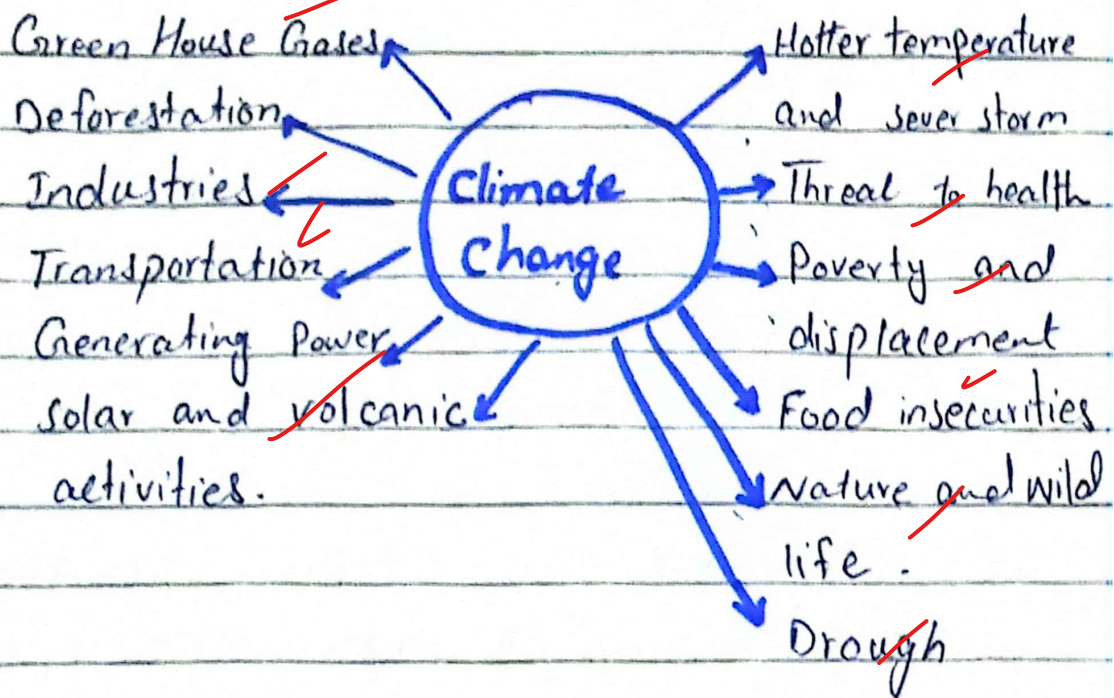 Green House Gases
Deforestation
Industries
Transportation
Generating Power
solar and volcanic
activities.
Climate
Change
Hotter temperature
and sever storm
Threat to health
Poverty and
displacement
Food insecurities.
Nature and wild
life .
Drough